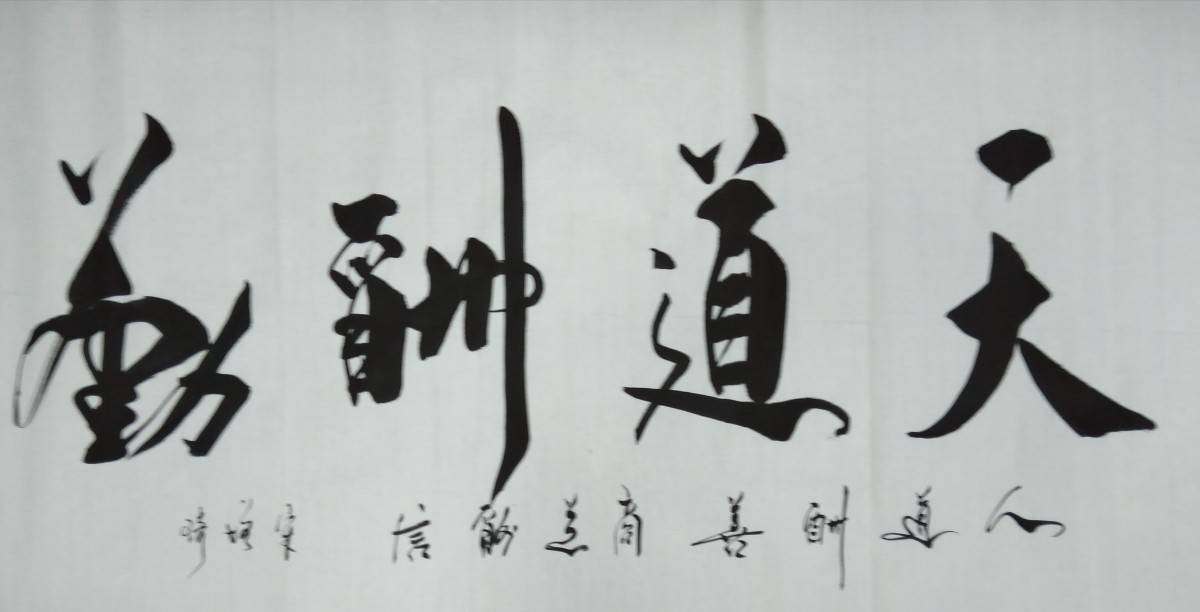 天道酬勤
人道酬善商道酬信